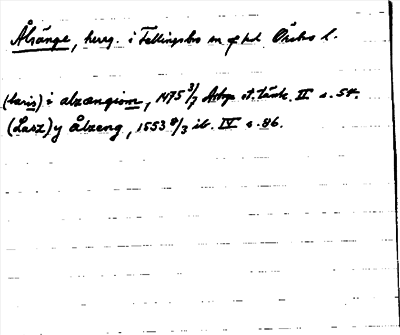 Ålsänge, herrg. i Fellingsbro sn o hd Örebro l.
(laris) i alzængiom, 1475 3/7 Arboga st. tänk. II s. 54.
(Lasz) y Ålzeng, 1553 8/3 ib. IV s. 86.